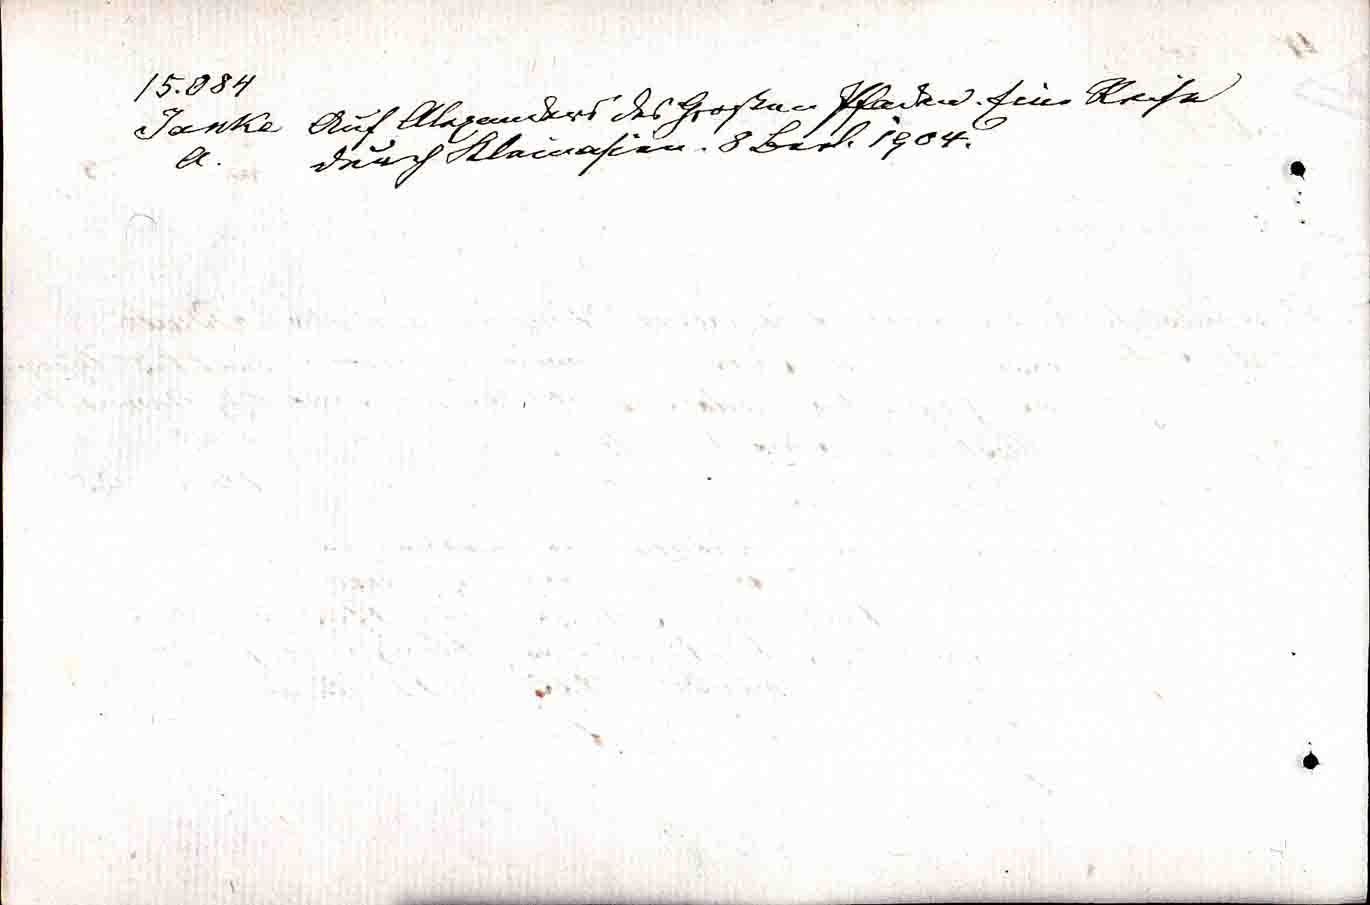 15.084
Janke Auf Alexanders des Großen Pfaden. Eine Reise
A. durch Kleinasien. 8 Berl. 1904.